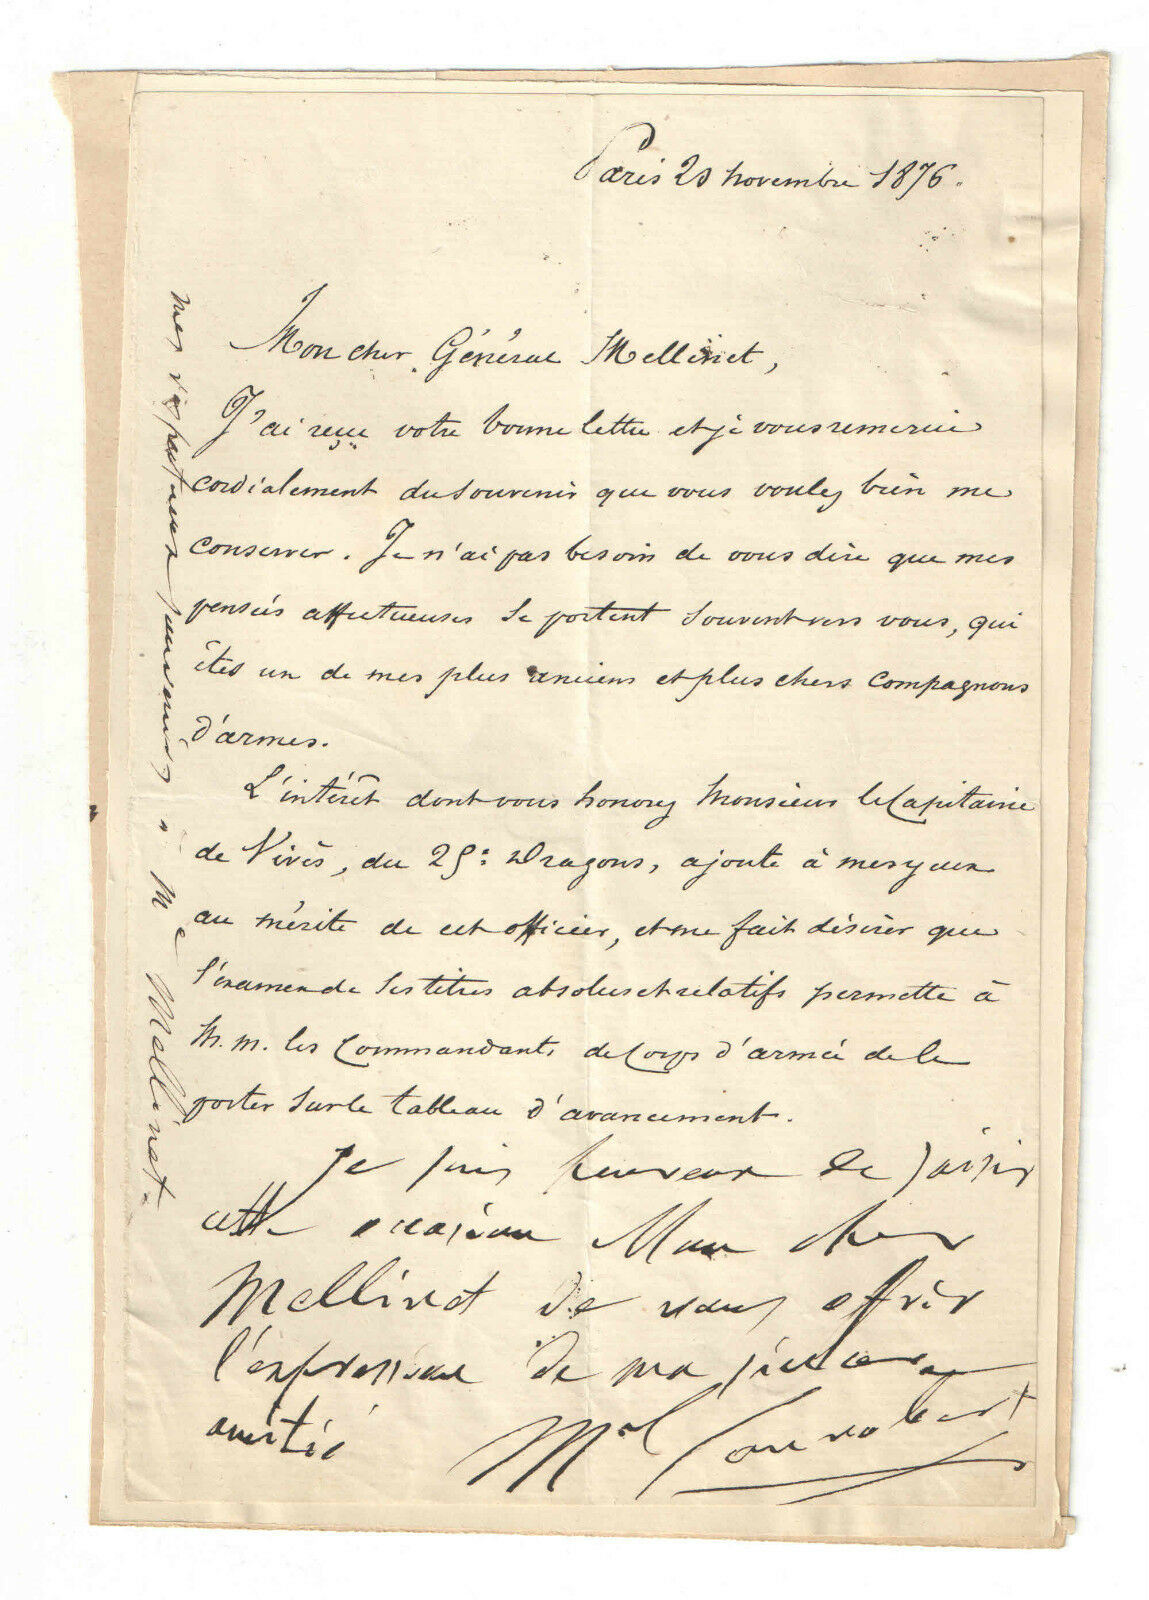 Paris 20 novembre 1876.
Mon cher Général Mellinet,
J'ai reçu votre bonne lettre et je vous remercie
cordialement du souvenir que vous voulez bien me
conserver. Je n'ai pas besoin de vous dire que mes
pensées affectueuses se portent souvent vers vous, qui
êtes un de mes plus anciens et plus chers compagnons
d'armes.
L'intérêt dont vous honorez Monsieur le Capitaine
de Virès, du 25e: Dragons, ajoute à mes yeux
au mérite de cet officier, et me fait désirer que
l'examen de ses titres absolus et relatifs permette à
M.M. les Commandants de Corps d'armée de le
porter sur le tableau d'avancement.
Je suis heureux de saisir
cette occasion Mon cher
Mellinet de vous offrir
l'expression de ma sincère
amitié
Mal Canrobert
mes respectueux souvenirs à Me Mellinet.